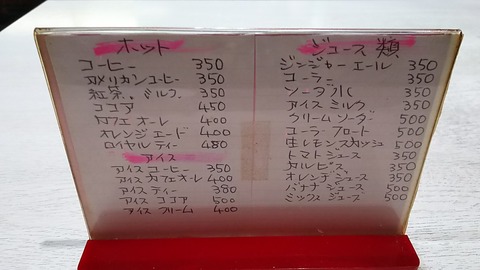 ホット
コーヒー 350
アメリカンコーヒー 350
紅茶、ミルク 350
ココア 450
カフェオーレ 400
オレンジエード 400
ロイヤルティー 480
アイス
アイスコーヒー 350
アイスカフェオーレ 400
アイスティー 380
アイスココア 500
アイスクリーム 400
ジュース類
ジンジャーエール 350
コーラ 350
ソーダ水 350
アイスミルク 350
クリームソーダー 500
コーラーフロート 500
生レモンスカッシュ 500
トマトジュース 350
カルピス 350
オレンヂジュース 350
バナナジュース 500
ミックスジュース 500